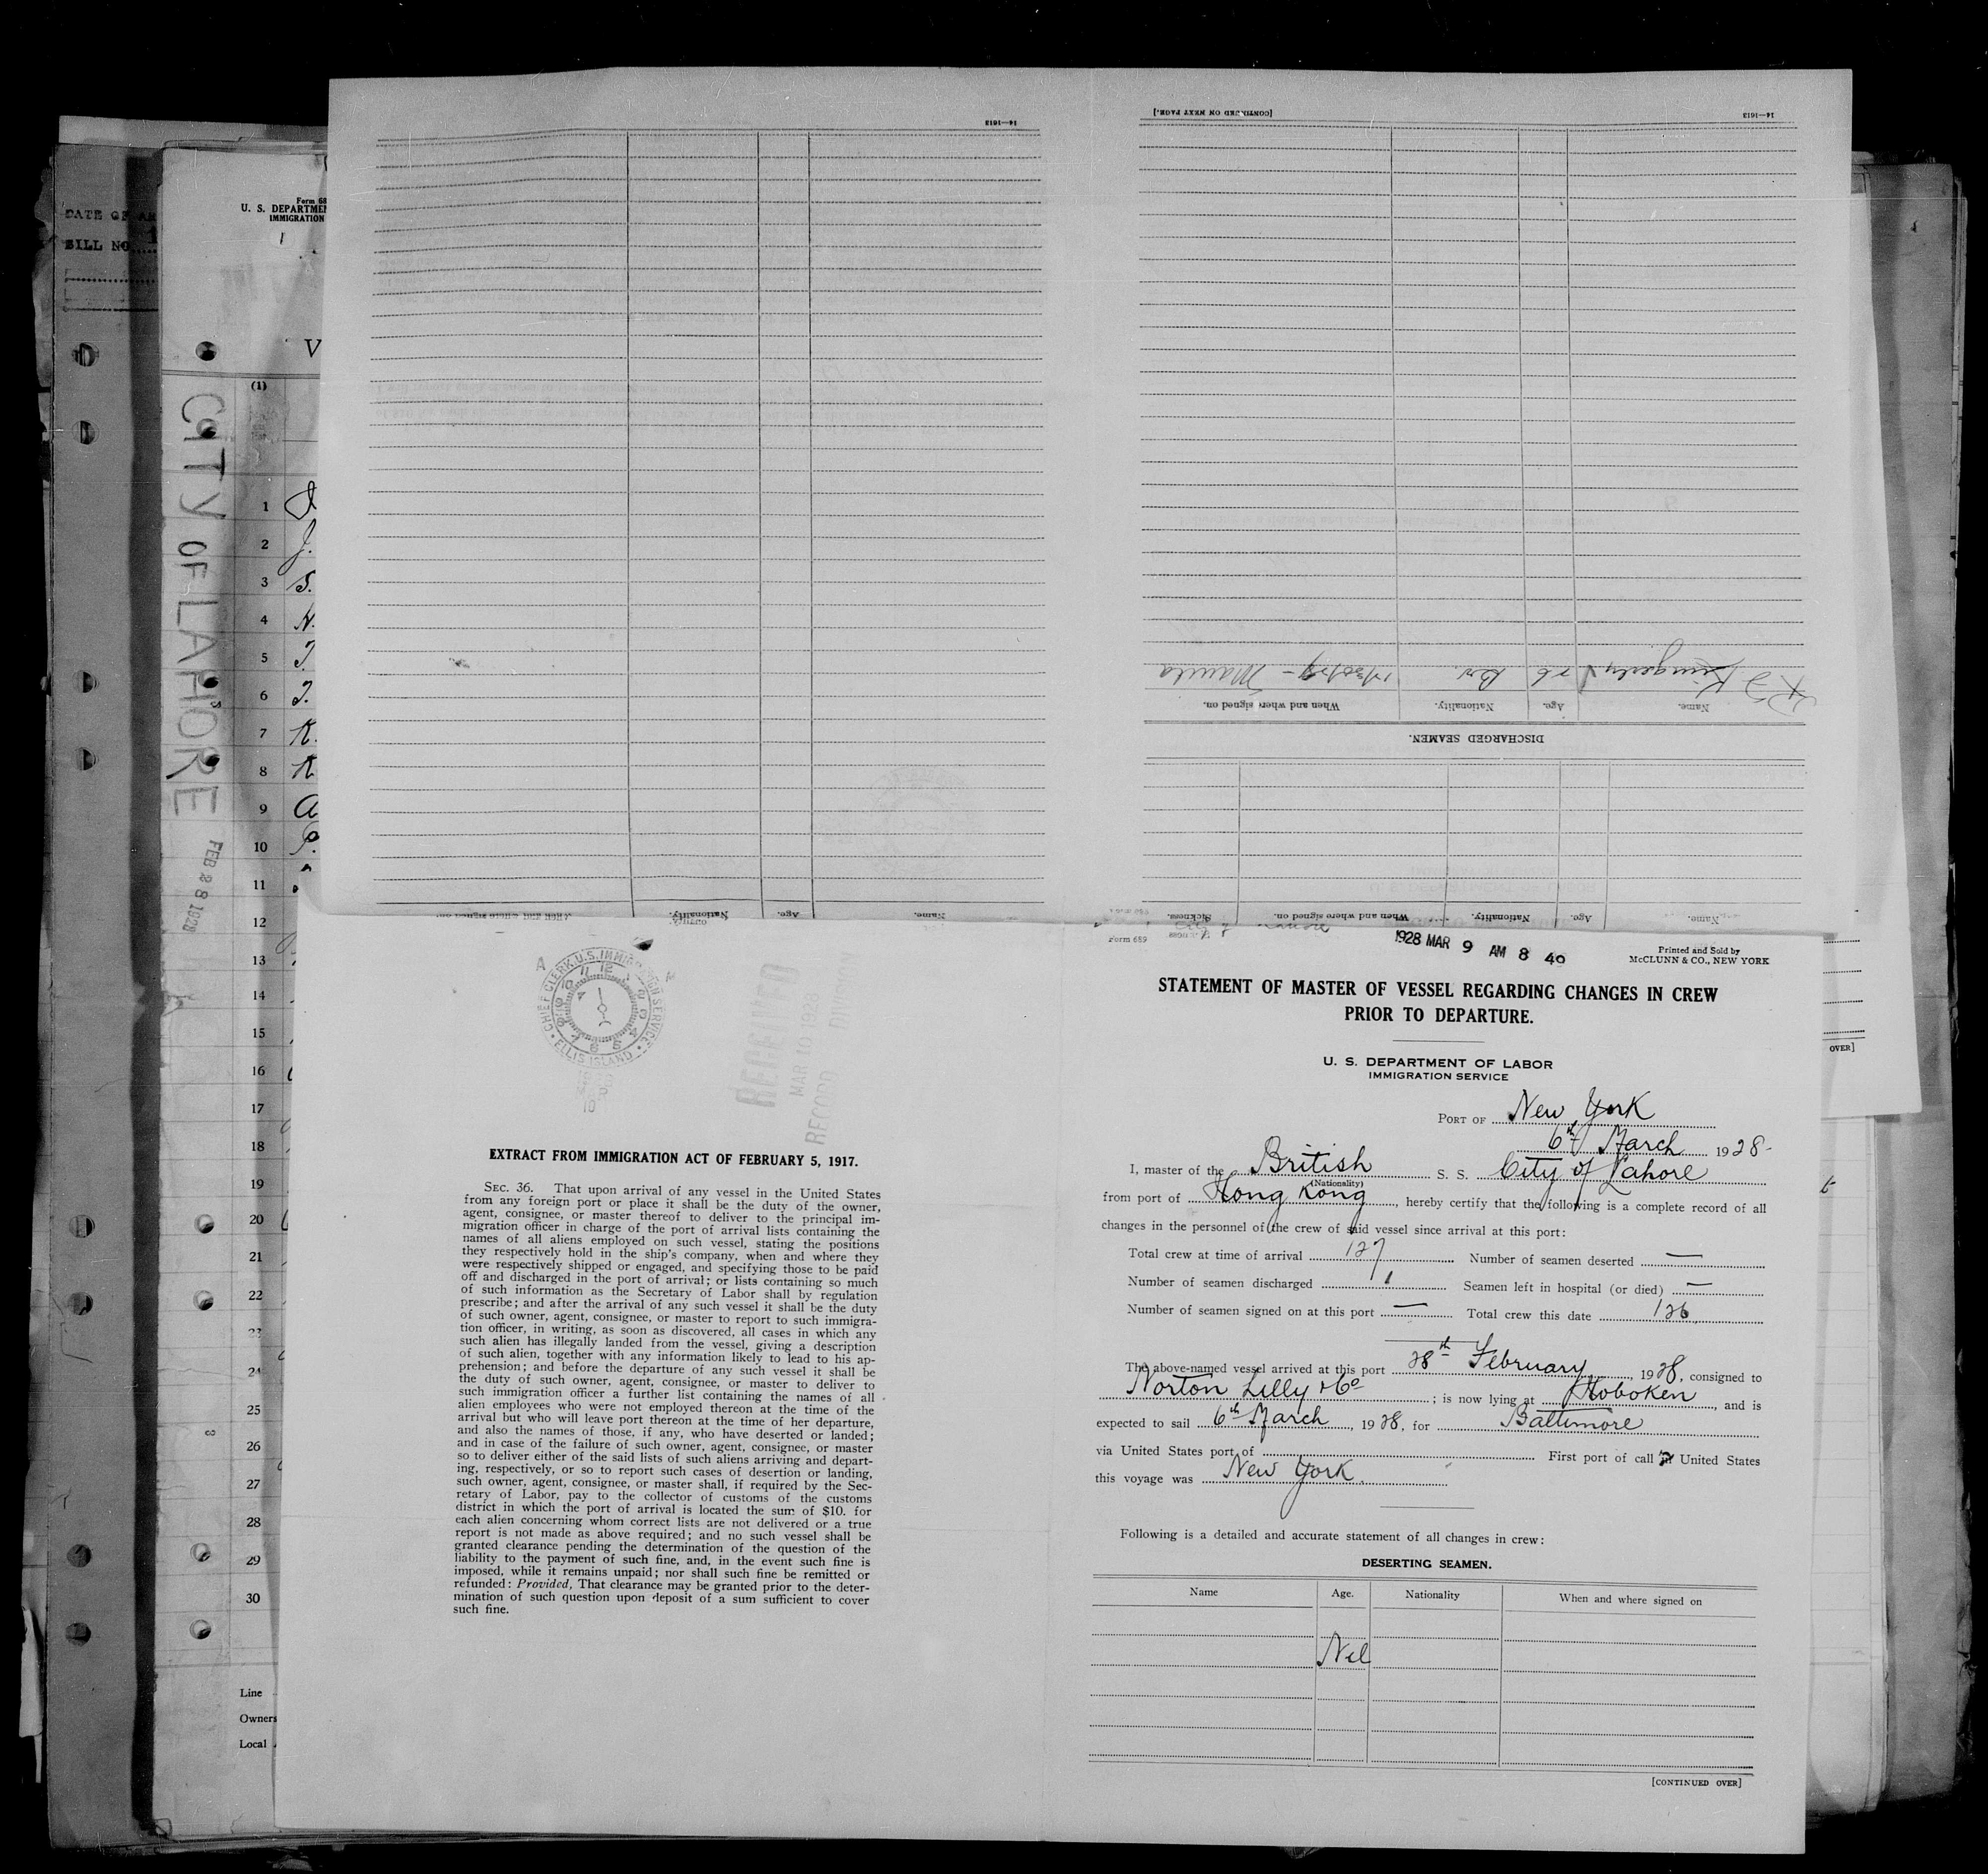 14—1613
[CONTINUED ON NEXT PAGE.]
14—1613
DATE OF AR
BILL NO.
Form 68
U. S. DEPARTMEN
IMMIGRATION
V
(1)
CITY OF LAHORE
FEB 28 1928
1
2 J.
3 S.
4 H.
5 J.
6 J.
7 K.
8 K
9 A
10 P.
11
12
13
14
15
16
17
18
19
20
21
22
23
24
25
26
27
28
29
30
Line
Owners
Local
Kingerly 26 Br. Manila
Name. Age. Nationality. When and where signed on.
DISCHARGED SEAMEN.
Name. Age. Nationality. When and where signed on.
Name. Age. Nationality. When and where signed on. Sickness.
CHIEF CLERK, U.S. IMMIGRATION SERVICE
ELLIS ISLAND
RECEIVED
MAR 10 1928
RECORD DIVISION
EXTRACT FROM IMMIGRATION ACT OF FEBRUARY 5, 1917.
SEC. 36. That upon arrival of any vessel in the United States
from any foreign port or place it shall be the duty of the owner,
agent, consignee, or master thereof to deliver to the principal im-
migration officer in charge of the port of arrival lists containing the
names of all aliens employed on such vessel, stating the positions
they respectively hold in the ship's company, when and where they
were respectively shipped or engaged, and specifying those to be paid
off and discharged in the port of arrival; or lists containing so much
of such information as the Secretary of Labor shall by regulation
prescribe; and after the arrival of any such vessel it shall be the duty
of such owner, agent, consignee, or master to report to such immigra-
tion officer, in writing, as soon as discovered, all cases in which any
such alien has illegally landed from the vessel, giving a description
of such alien, together with any information likely to lead to his ap-
prehension; and before the departure of any such vessel it shall be
the duty of such owner, agent, consignee, or master to deliver to
such immigration officer a further list containing the names of all
alien employees who were not employed thereon at the time of the
arrival but who will leave port thereon at the time of her departure,
and also the names of those, if any, who have deserted or landed;
and in case of the failure of such owner, agent, consignee, or master
so to deliver either of the said lists of such aliens arriving and depart-
ing, respectively, or so to report such cases of desertion or landing,
such owner, agent, consignee, or master shall, if required by the Sec-
retary of Labor, pay to the collector of customs of the customs
district in which the port of arrival is located the sum of $10. for
each alien concerning whom correct lists are not delivered or a true
report is not made as above required; and no such vessel shall be
granted clearance pending the determination of the question of the
liability to the payment of such fine, and, in the event such fine is
imposed, while it remains unpaid; nor shall such fine be remitted or
refunded: Provided, That clearance may be granted prior to the deter-
mination of such question upon deposit of a sum sufficient to cover
such fine.
Form 689
1928 MAR 9 AM 8 40
Printed and Sold by
McCLUNN & CO., NEW YORK
STATEMENT OF MASTER OF VESSEL REGARDING CHANGES IN CREW
PRIOR TO DEPARTURE.
U. S. DEPARTMENT OF LABOR
IMMIGRATION SERVICE
PORT OF New York
6th March 1928-
I, master of the British S. S. City of Lahore
(Nationality)
from port of Hong Kong, hereby certify that the following is a complete record of all
changes in the personnel of the crew of said vessel since arrival at this port:
Total crew at time of arrival 127 Number of seamen deserted —
Number of seamen discharged 1 Seamen left in hospital (or died) —
Number of seamen signed on at this port — Total crew this date 126
The above-named vessel arrived at this port 28th February, 1928, consigned to
Norton Lilly & Co; is now lying at Hoboken, and is
expected to sail 6th March, 1928, for Baltimore
via United States port of First port of call in United States
this voyage was New York.
Following is a detailed and accurate statement of all changes in crew:
DESERTING SEAMEN.
Name Age. Nationality When and where signed on
Nil
[CONTINUED OVER]
OVER]